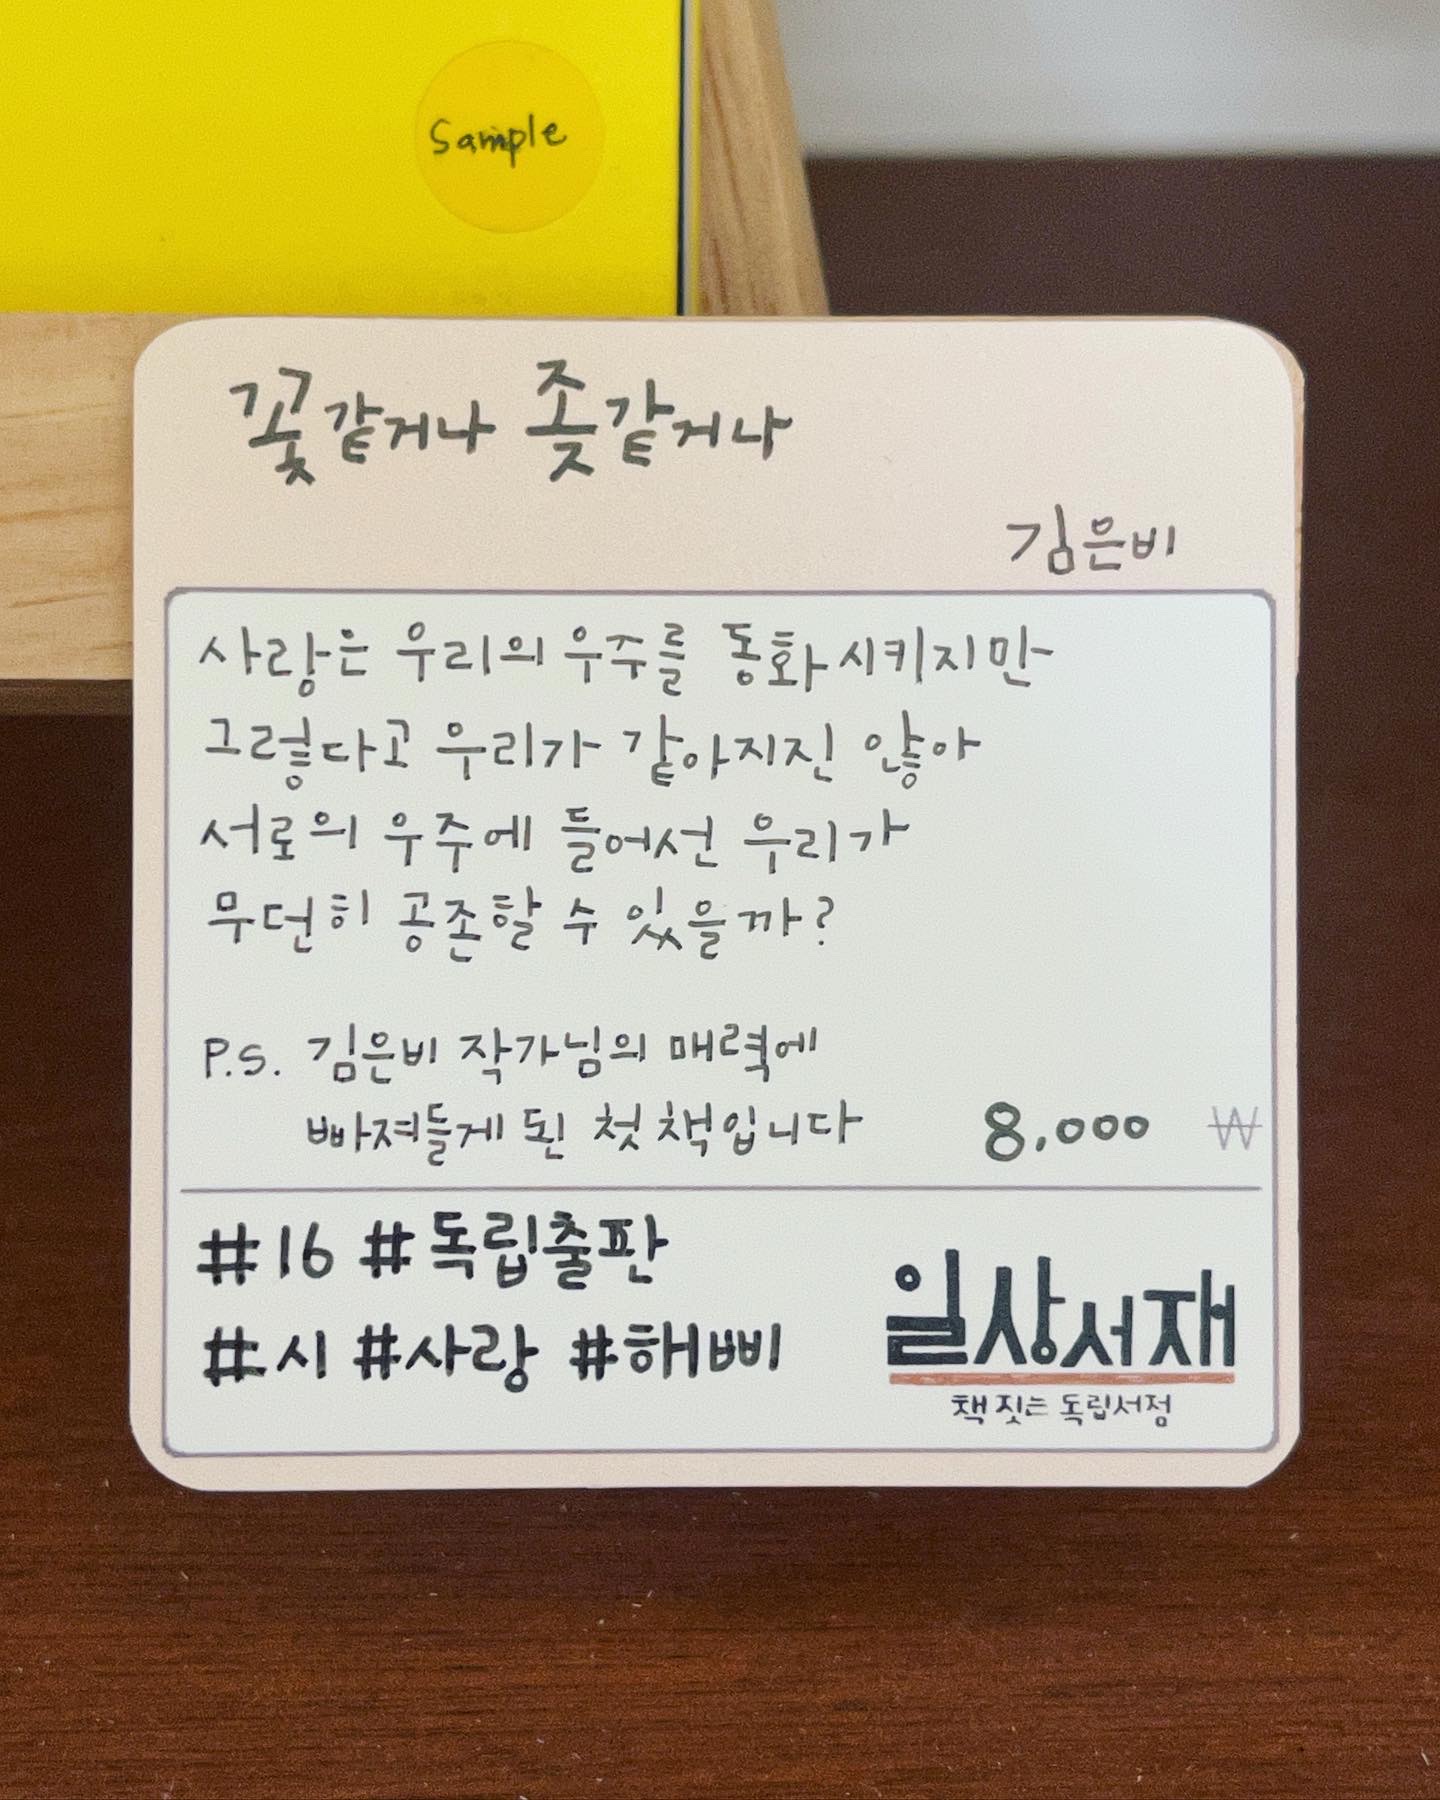 Sample
꽃같거나 좆같거나
김은비
사랑은 우리의 우주를 동화시키지만
그렇다고 우리가 같아지진 않아
서로의 우주에 들어선 우리가
무던히 공존할 수 있을까?
P.S. 김은비 작가님의 매력에
빠져들게 된 첫 책입니다
8.000 ₩
#16 #독립출판
#시 #사랑 #해삐
일상서재
책 짓는 독립서점